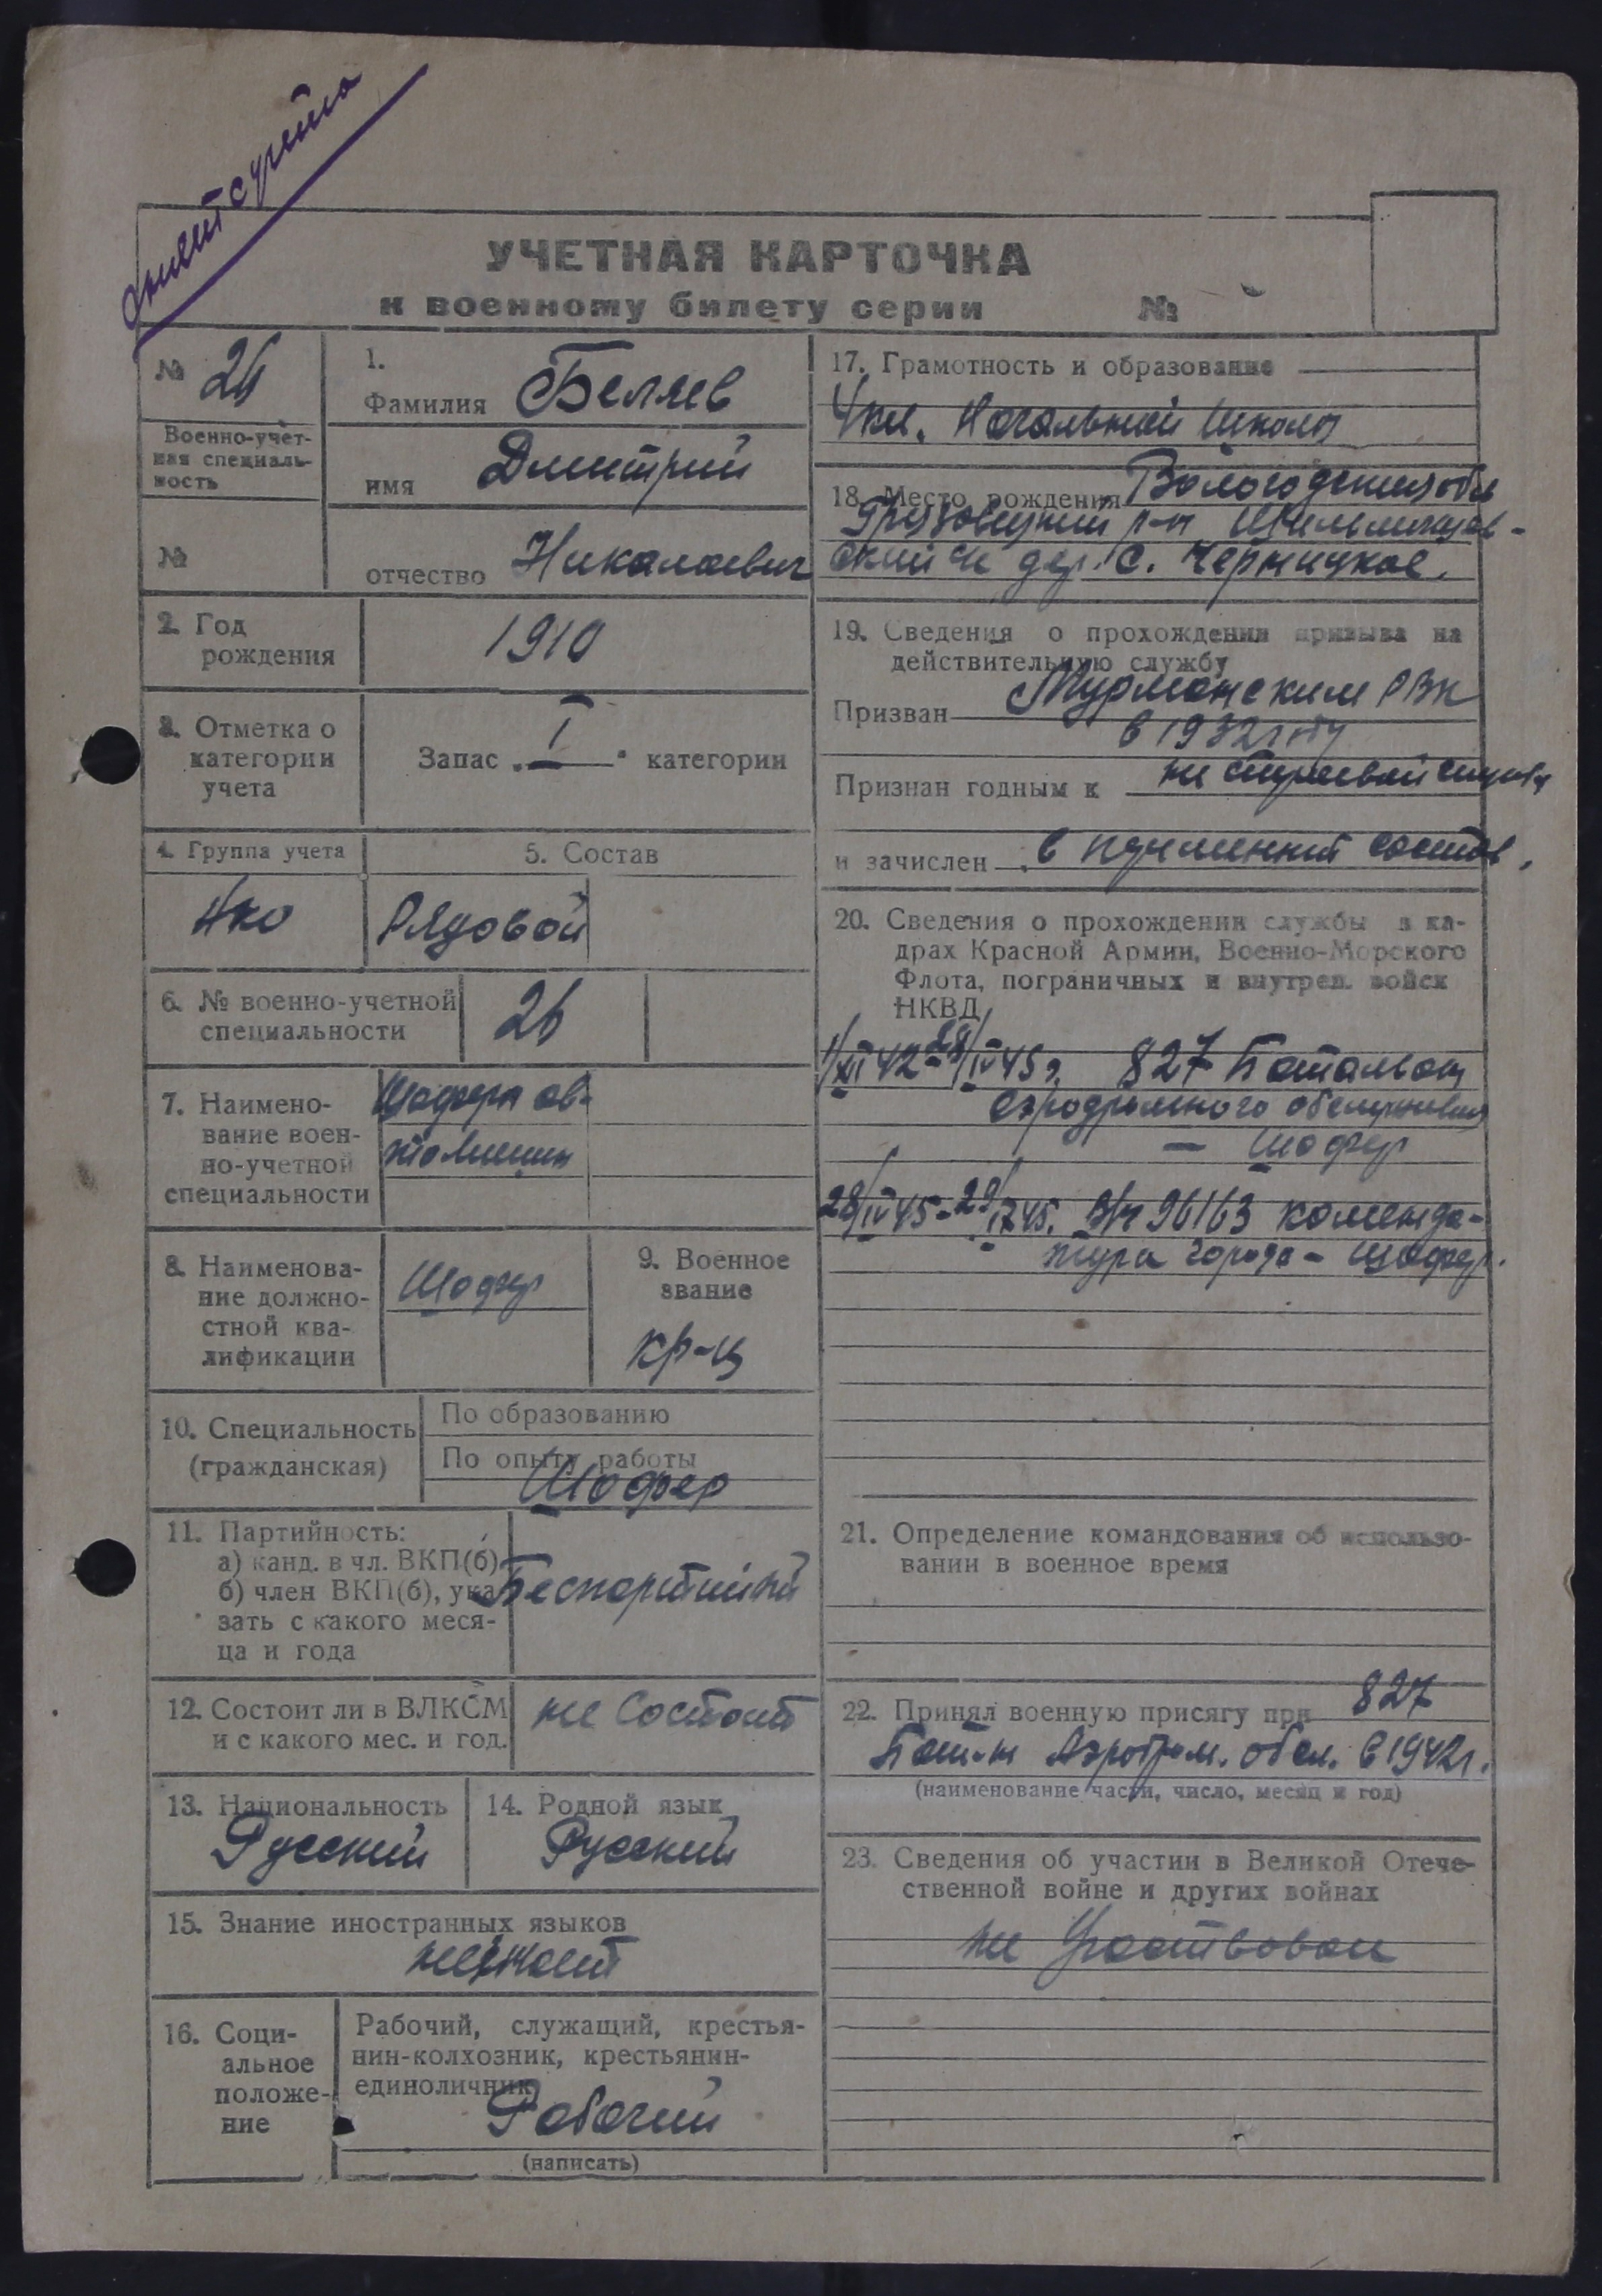 снят с учета
УЧЕТНАЯ КАРТОЧКА
к военному билету серии №
№ 26
Военно-учет-
ная специаль-
ность
№
1.
Фамилия Беляев
имя Дмитрий
отчество Николаевич
2. Год
рождения
1910
3. Отметка о
категории
учета
Запас I категории
4. Группа учета
5. Состав
Рядовой
6. № военно-учетной
специальности
26
7. Наимено-
вание воен-
но-учетной
специальности
Шофера ав-
томашин
8. Наименова-
ние должно-
стной ква-
лификации
Шофер
9. Военное
звание
кр-ц
10. Специальность
(гражданская)
По образованию
По опыту работы
Шофер
11. Партийность:
а) канд. в чл. ВКП(б)
б) член ВКП(б), ука-
зать с какого меся-
ца и года
Беспартийный
12. Состоит ли в ВЛКСМ
и с какого мес. и год.
не состоит
13. Национальность
Русский
14. Родной язык
Русский
15. Знание иностранных языков
не знает
16. Соци-
альное
положе-
ние
Рабочий, служащий, крестья-
нин-колхозник, крестьянин-
единоличник
Рабочий
(написать)
17. Грамотность и образование
4 кл. Начальной Школы
18. Место рождения Вологодския обл
Грязовецкий р-н
дер. С. Черницкое.
19. Сведения о прохождении призыва на
действительную службу
Призван Мурманским РВК
в 1932 году
Признан годным к не строевой службы
и зачислен в состав.
20. Сведения о прохождении службы в ка-
драх Красной Армии, Военно-Морского
Флота, пограничных и внутрен. войск
НКВД
1/XI 42 - 28/IV 45 г. 827 Батальон
аэродромного обслуживания
— Шофер
28/IV 45 - 29/IX 45. В/ч 96163 коменда-
тура города - шофер.
21. Определение командования об использо-
вании в военное время
22. Принял военную присягу при 827
Бат-н Аэродром. обсл. в 1942 г.
(наименование части, число, месяц и год)
23. Сведения об участии в Великой Отече-
ственной войне и других войнах
не Участвовал